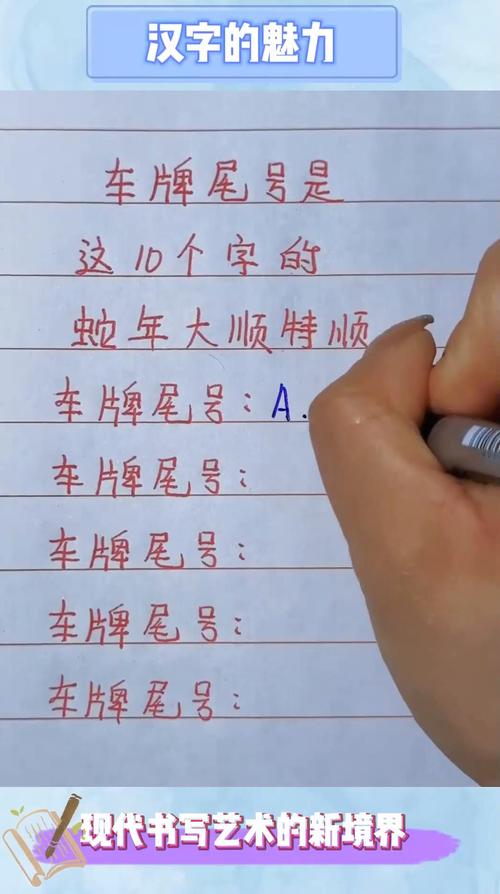 汉字的魅力
车牌尾号是
这10个字的
蛇年大顺特顺
车牌尾号：A.
车牌尾号：
车牌尾号：
车牌尾号：
车牌尾号：
现代书写艺术的新境界